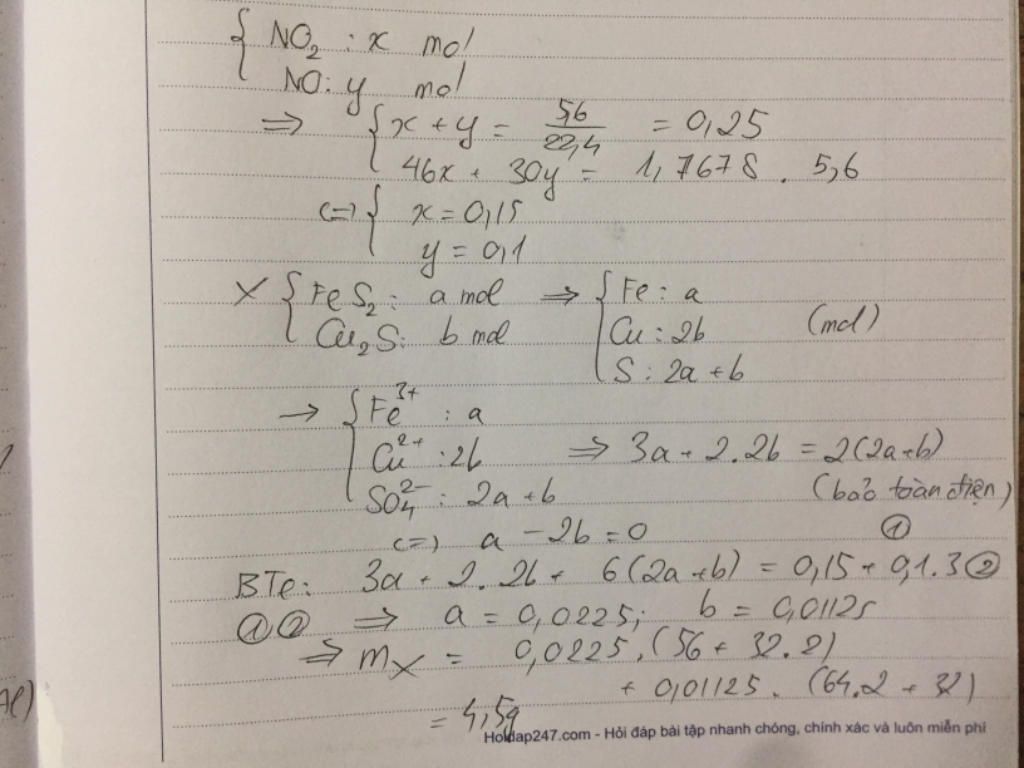 { NO₂ : x mol
NO: y mol
⇒ { x + y = 56/22,4 = 0,25
46x + 30y = 1,7678 . 5,6
<=> { x = 0,15
y = 0,1
X { FeS₂ : a mol ⇒ { Fe : a
Cu₂S: b mol Cu : 2b (mol)
S : 2a + b
→ { Fe³⁺ : a
Cu²⁺ : 2b ⇒ 3a + 2.2b = 2(2a+b)
SO₄²⁻ : 2a + b (bảo toàn điện)
<=> a - 2b = 0 ①
BTe: 3a + 2.2b + 6(2a+b) = 0,15 + 0,1.3 ②
①② ⇒ a = 0,0225; b = 0,01125
⇒ mX = 0,0225.(56 + 32.2)
+ 0,01125. (64.2 + 32)
= 4,5g
Al)
Hoidap247.com - Hỏi đáp bài tập nhanh chóng, chính xác và luôn miễn phí